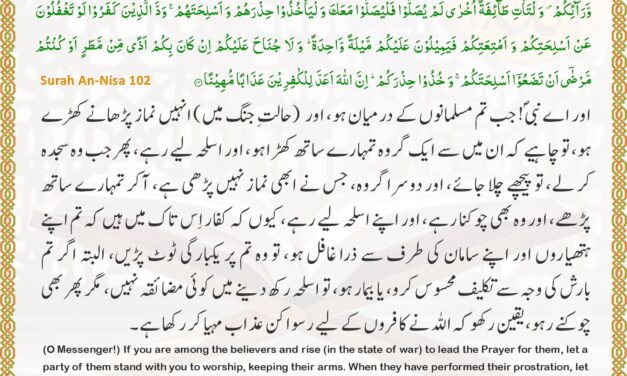 وَّرَآئِكُمْ ۪ وَلْتَاْتِ طَآئِفَةٌ اُخْرٰى لَمْ يُصَلُّوْا فَلْيُصَلُّوْا مَعَكَ وَلْيَاْخُذُوْا حِذْرَهُمْ وَاَسْلِحَتَهُمْ ۚ وَدَّ الَّذِيْنَ كَفَرُوْا لَوْ تَغْفُلُوْنَ
عَنْ اَسْلِحَتِكُمْ وَ اَمْتِعَتِكُمْ فَيَمِيْلُوْنَ عَلَيْكُمْ مَّيْلَةً وَّاحِدَةً ؕ وَ لَا جُنَاحَ عَلَيْكُمْ اِنْ كَانَ بِكُمْ اَذًى مِّنْ مَّطَرٍ اَوْ كُنْتُمْ
مَّرْضٰٓى اَنْ تَضَعُوْۤا اَسْلِحَتَكُمْ ۚ وَ خُذُوْا حِذْرَكُمْ ؕ اِنَّ اللّٰهَ اَعَدَّ لِلْكٰفِرِيْنَ عَذَابًا مُّهِيْنًا Surah An-Nisa 102
اور اے نبیؐ! جب تم مسلمانوں کے درمیان ہو، اور (حالتِ جنگ میں) انہیں نماز پڑھانے کھڑے
ہو، تو چاہیے کہ ان میں سے ایک گروہ تمہارے ساتھ کھڑا ہو، اور اسلحہ لیے رہے، پھر جب وہ سجدہ
کر لے، تو پیچھے چلا جائے، اور دوسرا گروہ، جس نے ابھی نماز نہیں پڑھی ہے، آکر تمہارے ساتھ
پڑھے، اور وہ بھی چوکنا رہے، اور اپنے اسلحہ لیے رہے، کیوں کہ کفار اِس تاک میں ہیں کہ تم اپنے
ہتھیاروں اور اپنے سامان کی طرف سے ذرا غافل ہو، تو وہ تم پر یکبارگی ٹوٹ پڑیں، البتہ اگر تم
بارش کی وجہ سے تکلیف محسوس کرو، یا بیمار ہو، تو اسلحہ رکھ دینے میں کوئی مضائقہ نہیں، مگر پھر بھی
چوکنے رہو، یقین رکھو کہ اللہ نے کافروں کے لیے رسوا کن عذاب مہیا کر رکھا ہے۔
(O Messenger!) If you are among the believers and rise (in the state of war) to lead the Prayer for them, let a
party of them stand with you to worship, keeping their arms. When they have performed their prostration, let